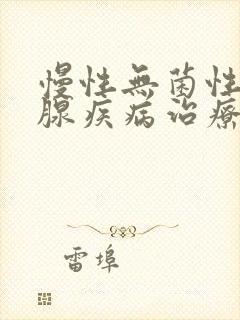 慢性無菌性
腺疾病治療
雷埠